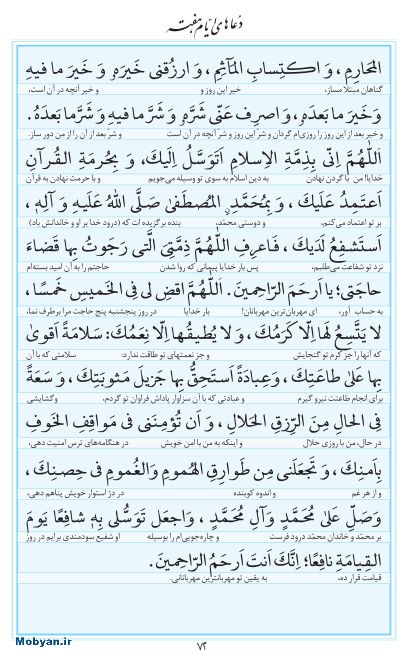 دعاهای ایّام هفته
المَحارِمِ، وَاكتِسابِ المَآثِمِ، وَارزُقنى خَيرَهُ وَ خَيرَ ما فيهِ
گناهان مبتلا مساز، خیر این روز و و خیر آنچه در آن است،
وَ خَيرَ ما بَعدَهُ، وَاصرِف عَنّى شَرَّهُ وَ شَرَّ ما فيهِ وَ شَرَّ ما بَعدَهُ.
و خیر بعد از این روز را روزی‌ام گردان و شرّ این روز و شرّ آنچه در آن است و شرّ بعد از آن را از من دور ساز.
اَللّهُمَّ اِنّى بِذِمَّةِ الاِسلامِ اَتَوَسَّلُ اِلَيكَ، وَ بِحُرمَةِ القُرآنِ
خدایا! من با گردن نهادن به دین اسلام به سوی تو وسیله می‌جویم و با حرمت نهادن به قرآن
اَعتَمِدُ عَلَيكَ، وَ بِمُحَمَّدٍ المُصطَفىٰ صَلَّى اللّهُ عَلَيهِ وَ آلِهِ،
بر تو اعتماد می‌کنم، و دوستی محمّد، بنده برگزیده ات که (درود خدا بر او و خاندانش باد)
اَستَشفِعُ لَدَيكَ، فَاعرِفِ اللّهُمَّ ذِمَّتِىَ الَّتى رَجَوتُ بِها قَضاءَ
نزد تو شفاعت می‌طلبم، پس بار خدایا پیمانی که روا شدن حاجتم را به آن امید بسته‌ام
حاجَتى؛ يا اَرحَمَ الرّاحِمينَ. اَللّهُمَّ اقضِ لى فِى الخَميسِ خَمسًا،
به حساب آور، ای مهربان‌ترین مهربانان! بار خدایا در روز پنجشنبه پنج حاجت مرا برطرف نما،
لا يَتَّسِعُ لَها اِلّا كَرَمُكَ، وَ لا يُطيقُها اِلّا نِعَمُكَ: سَلامَةً اَقوىٰ
که آنها را جز کرم تو گنجایش و جز نعمتهای تو طاقت ندارد: سلامتی که با آن
بِها عَلىٰ طاعَتِكَ، وَ عِبادَةً اَستَحِقُّ بِها جَزيلَ مَثوبَتِكَ، وَ سَعَةً
برای انجام طاعتت نیرو گیرم و عبادتی که با آن سزاوار پاداش فراوان تو گردم، و گشایشی
فِى الحالِ مِنَ الرِّزقِ الحَلالِ، وَ اَن تُؤمِنَنى فى مَواقِفِ الخَوفِ
در حال، من با روزی حلال و اینکه به من با امن خویش در هنگامه‌های ترس امنیت دهی،
بِاَمنِكَ، وَ تَجعَلَنى مِن طَوارِقِ الهُمومِ وَالغُمومِ فى حِصنِكَ،
و از هر غم و اندوه کوبنده در دژ استوار خویش پناهم دهی،
وَ صَلِّ عَلىٰ مُحَمَّدٍ وَ آلِ مُحَمَّدٍ، وَاجعَل تَوَسُّلى بِهِ شافِعًا يَومَ
بر محمّد و خاندان محمّد درود فرست و چاره‌جویی‌ام را بوسیله او شفیع سودمندی برایم در روز
القِيامَةِ نافِعًا؛ اِنَّكَ اَنتَ اَرحَمُ الرّاحِمينَ.
قیامت قرار ده، به یقین تو مهربانترین مهربانانی.
۷۲
Mobyan.ir